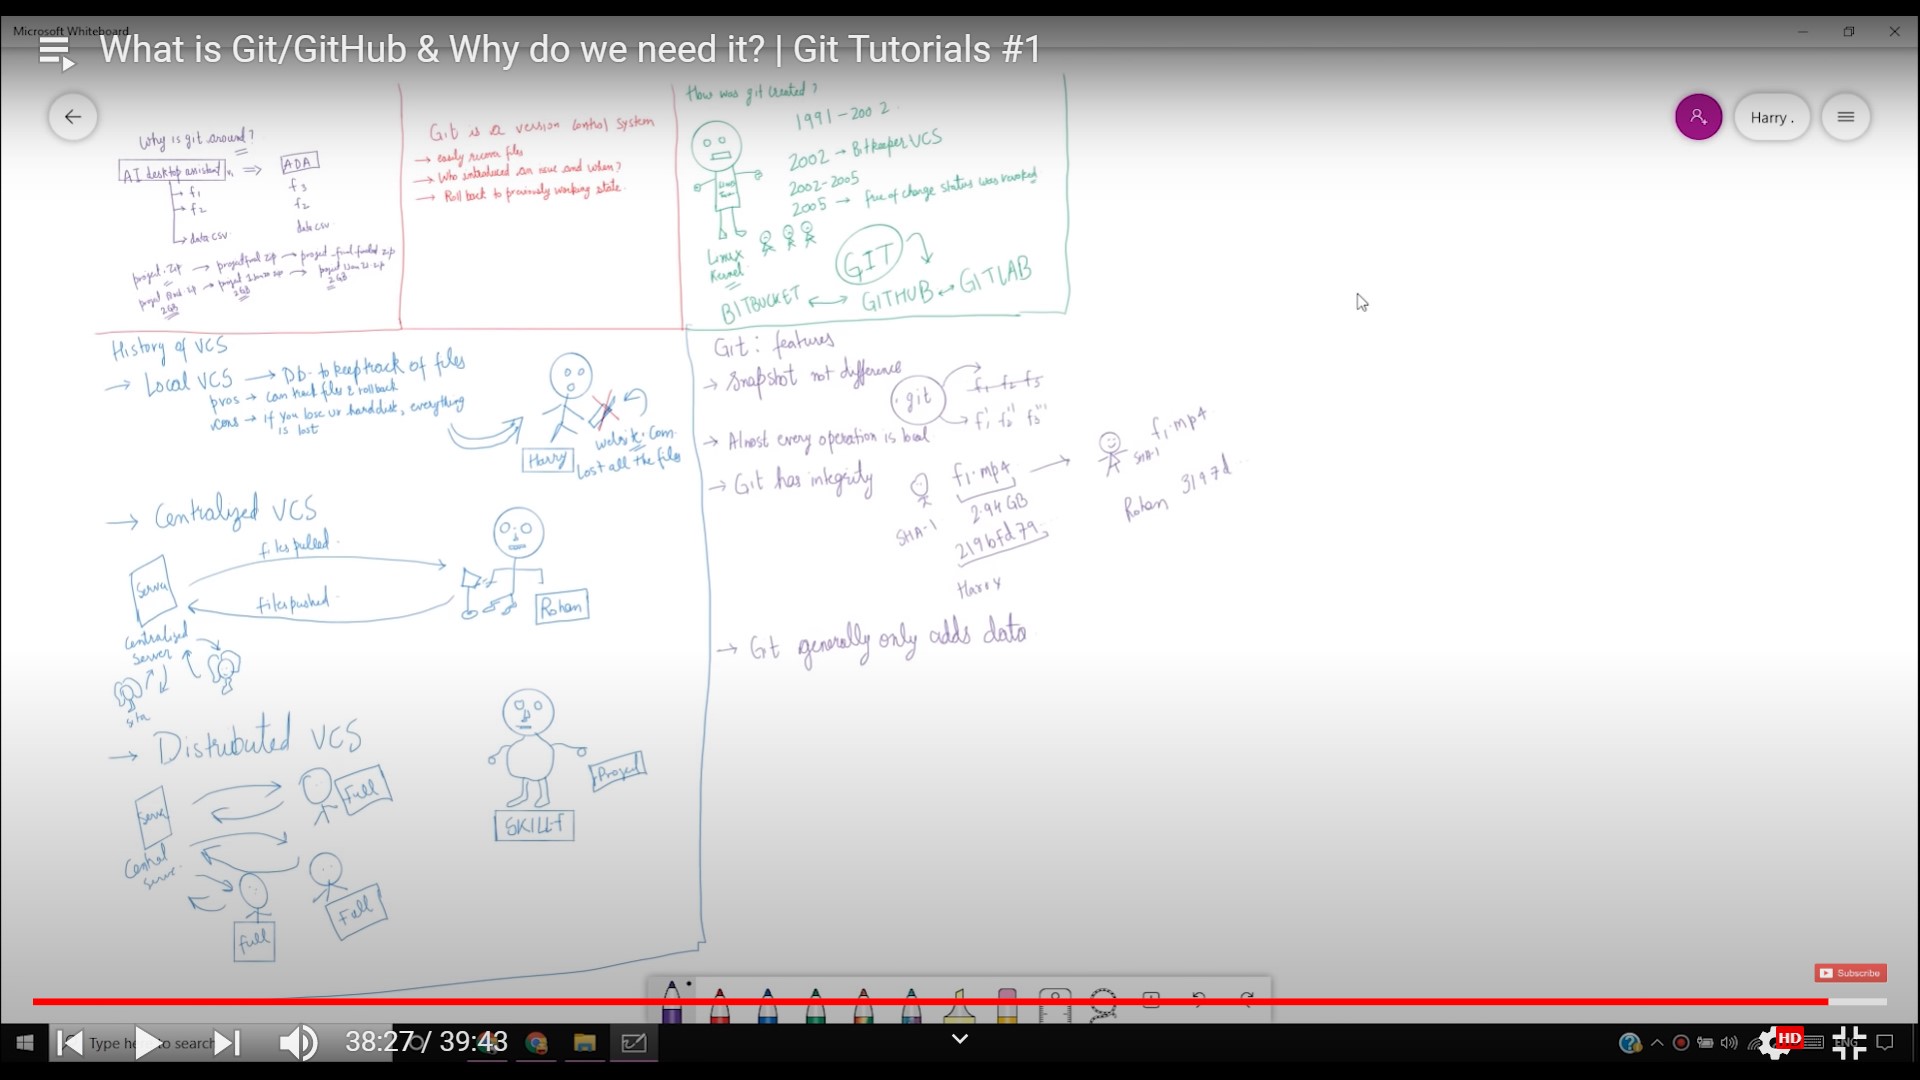 Microsoft Whiteboard
What is Git/GitHub & Why do we need it? | Git Tutorials #1
Harry .
Why is git around?
AI desktop assistant
ADA
f1
f2
data csv
f3
f2
data csv
project.zip → projectfinal zip → project
2GB
2GB
2GB
Git is a version control system
→ easily recover files
→ Who introduced an issue and when?
→ Roll back to previously working state.
How was git created?
1991-2002
2002 → Bitkeeper VCS
2002-2005
2005 → free of charge status was revoked
Linux
Kernel
GIT
BITBUCKET ↔ GITHUB ↔ GITLAB
History of VCS
→ Local VCS → Db- to keep track of files
pros → can track files & rollback
cons → if you lose ur hard disk, everything
is lost
Harry
website.com
Lost all the files
→ Centralized VCS
files pulled
files pushed
Server
Centralised
server
Rohan
→ Distributed VCS
Server
Central
server
Full
Full
Full
Project
SKILLF
Git: features
→ Snapshot not difference
git
f1 f2 f3
f1' f2'' f3'''
→ Almost every operation is local
→ Git has integrity
f1.mp4
2.94 GB
SHA-1
219bfd79
Harry
f1.mp4
SHA-1
Rohan 3197d
→ Git generally only adds data
Subscribe
Type here to search
38:27 / 39:43
HD
ENG